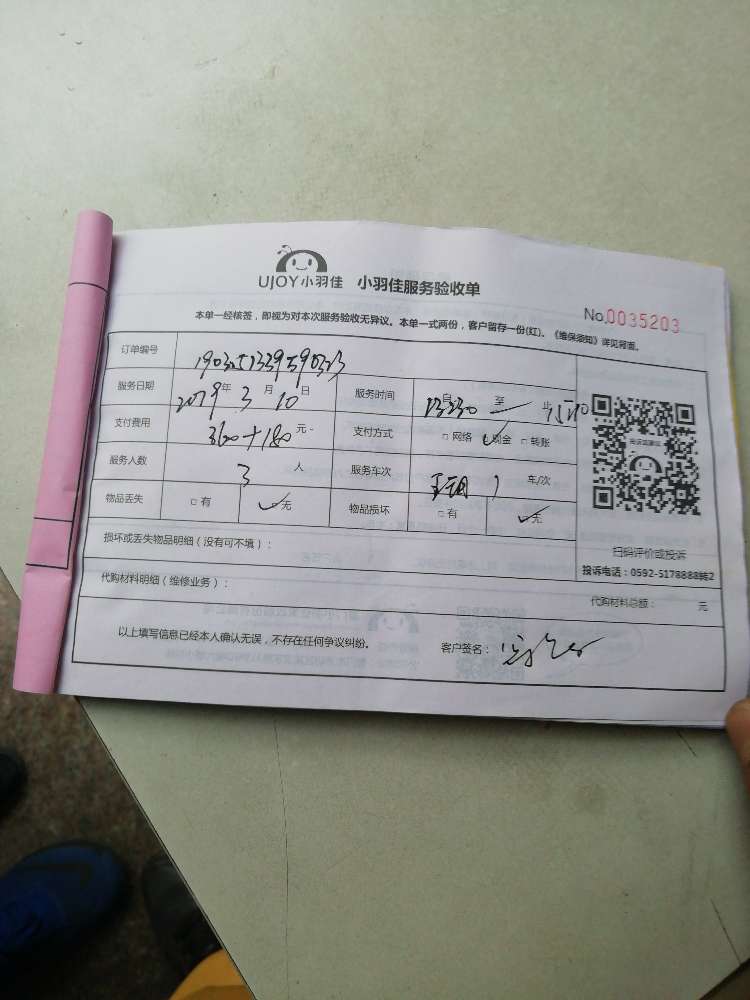 UJOY小羽佳 小羽佳服务验收单
No.0035203
本单一经核签，即视为对本次服务验收无异议。本单一式两份，客户留存一份(红)。《维保须知》详见背面。
订单编号
服务日期 2019年 3月 10日 服务时间 自 13:30 至 15:10
支付费用 360+180 元 支付方式 □网络 ✓现金 □转账
服务人数 3 人 服务车次 1 车/次
物品丢失 □有 ✓无 物品损坏 □有 ✓无
扫码评价或投诉
投诉电话：0592-5178888转2
损坏或丢失物品明细（没有可不填）：
代购材料明细（维修业务）： 代购材料总额： 元
以上填写信息已经本人确认无误，不存在任何争议纠纷。 客户签名：